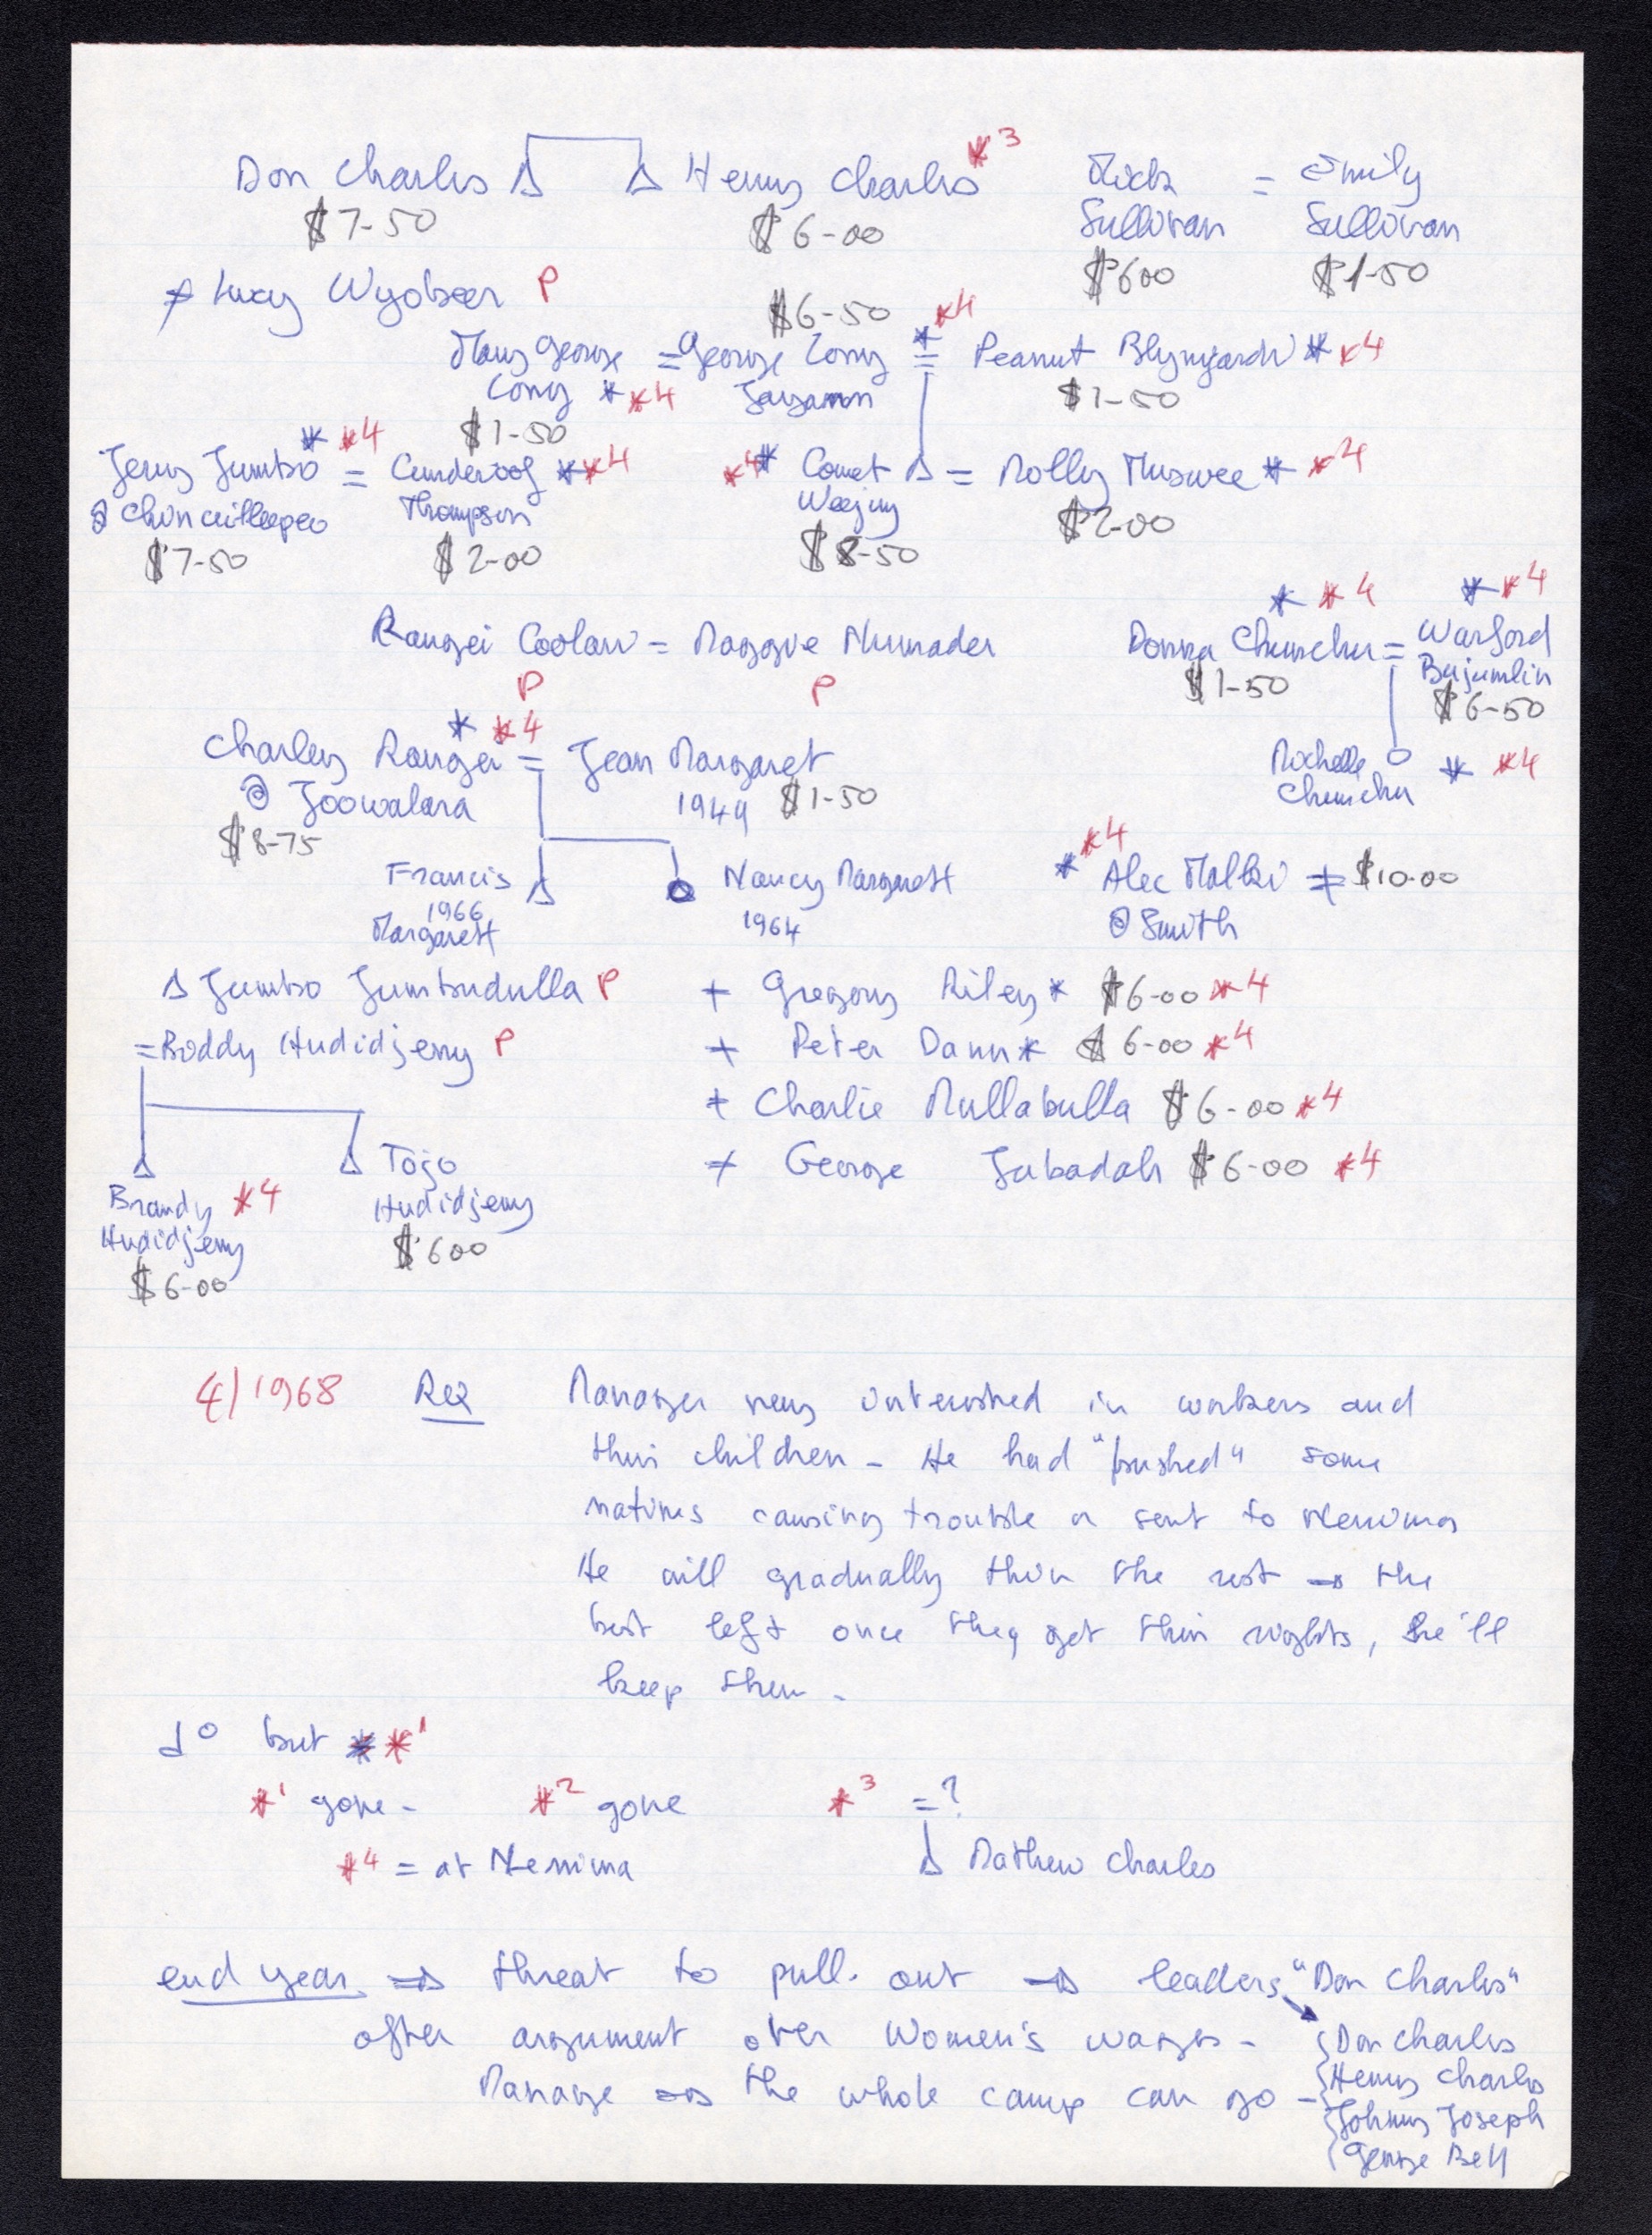 Don Charles Δ Δ Henry Charles *3 Mick = Emily
$7-50 $6-00 Sullivan Sullivan
$600 $1-50
≠ Lucy Wyobeer P
$6-50
Mary George = George Cony * *4 = Peanut Blynyardi * *4
Cony * *4 $1-50
$1-50
Jerry Jumbo * *4 = Cunderoog * *4 *4 * Comet Δ = Molly Muswee * *4
Thompson Weejuy $2-00
$7-50 $2-00 $8-50
Ranger Coolan = Maggie Numader
P P
Donna Chunchu * *4 = Warford * *4
$1-50 Bujumlin
$6-50
Rochelle O * *4
Chunchu
Charley Ranger * *4 = Jean Margaret
@ Joowalara 1949 $1-50
$8-75
Francis Δ Nancy Margarett
1966 1964
Margarett
* *4 Alec Malki ≠ $10-00
@ Smith
Δ Jumbo Jumbudulla P
= Roddy Hudidjerry P
Brandy *4 Tojo
Hudidjerry Hudidjerry
$6-00 $600
+ Gregory Riley * $6-00 *4
+ Peter Dann * $6-00 *4
+ Charlie Mullabulla $6-00 *4
≠ George Jabadah $6-00 *4
4/1968 Manager very interested in workers and
their children - He had "bushed" some
natives causing trouble or sent to Nerrima
He will gradually thin the rest → the
best left once they get their rights, he'll
keep them -
d° but *1
*1 gone - *2 gone *3 = ?
*4 = at Nerrima Δ Mathew Charles
end year ⇒ threat to pull out → leaders "Don Charles"
after argument over Women's wages - Don Charles
Manage → the whole camp can go - Henry Charles
Johnny Joseph
George Bell